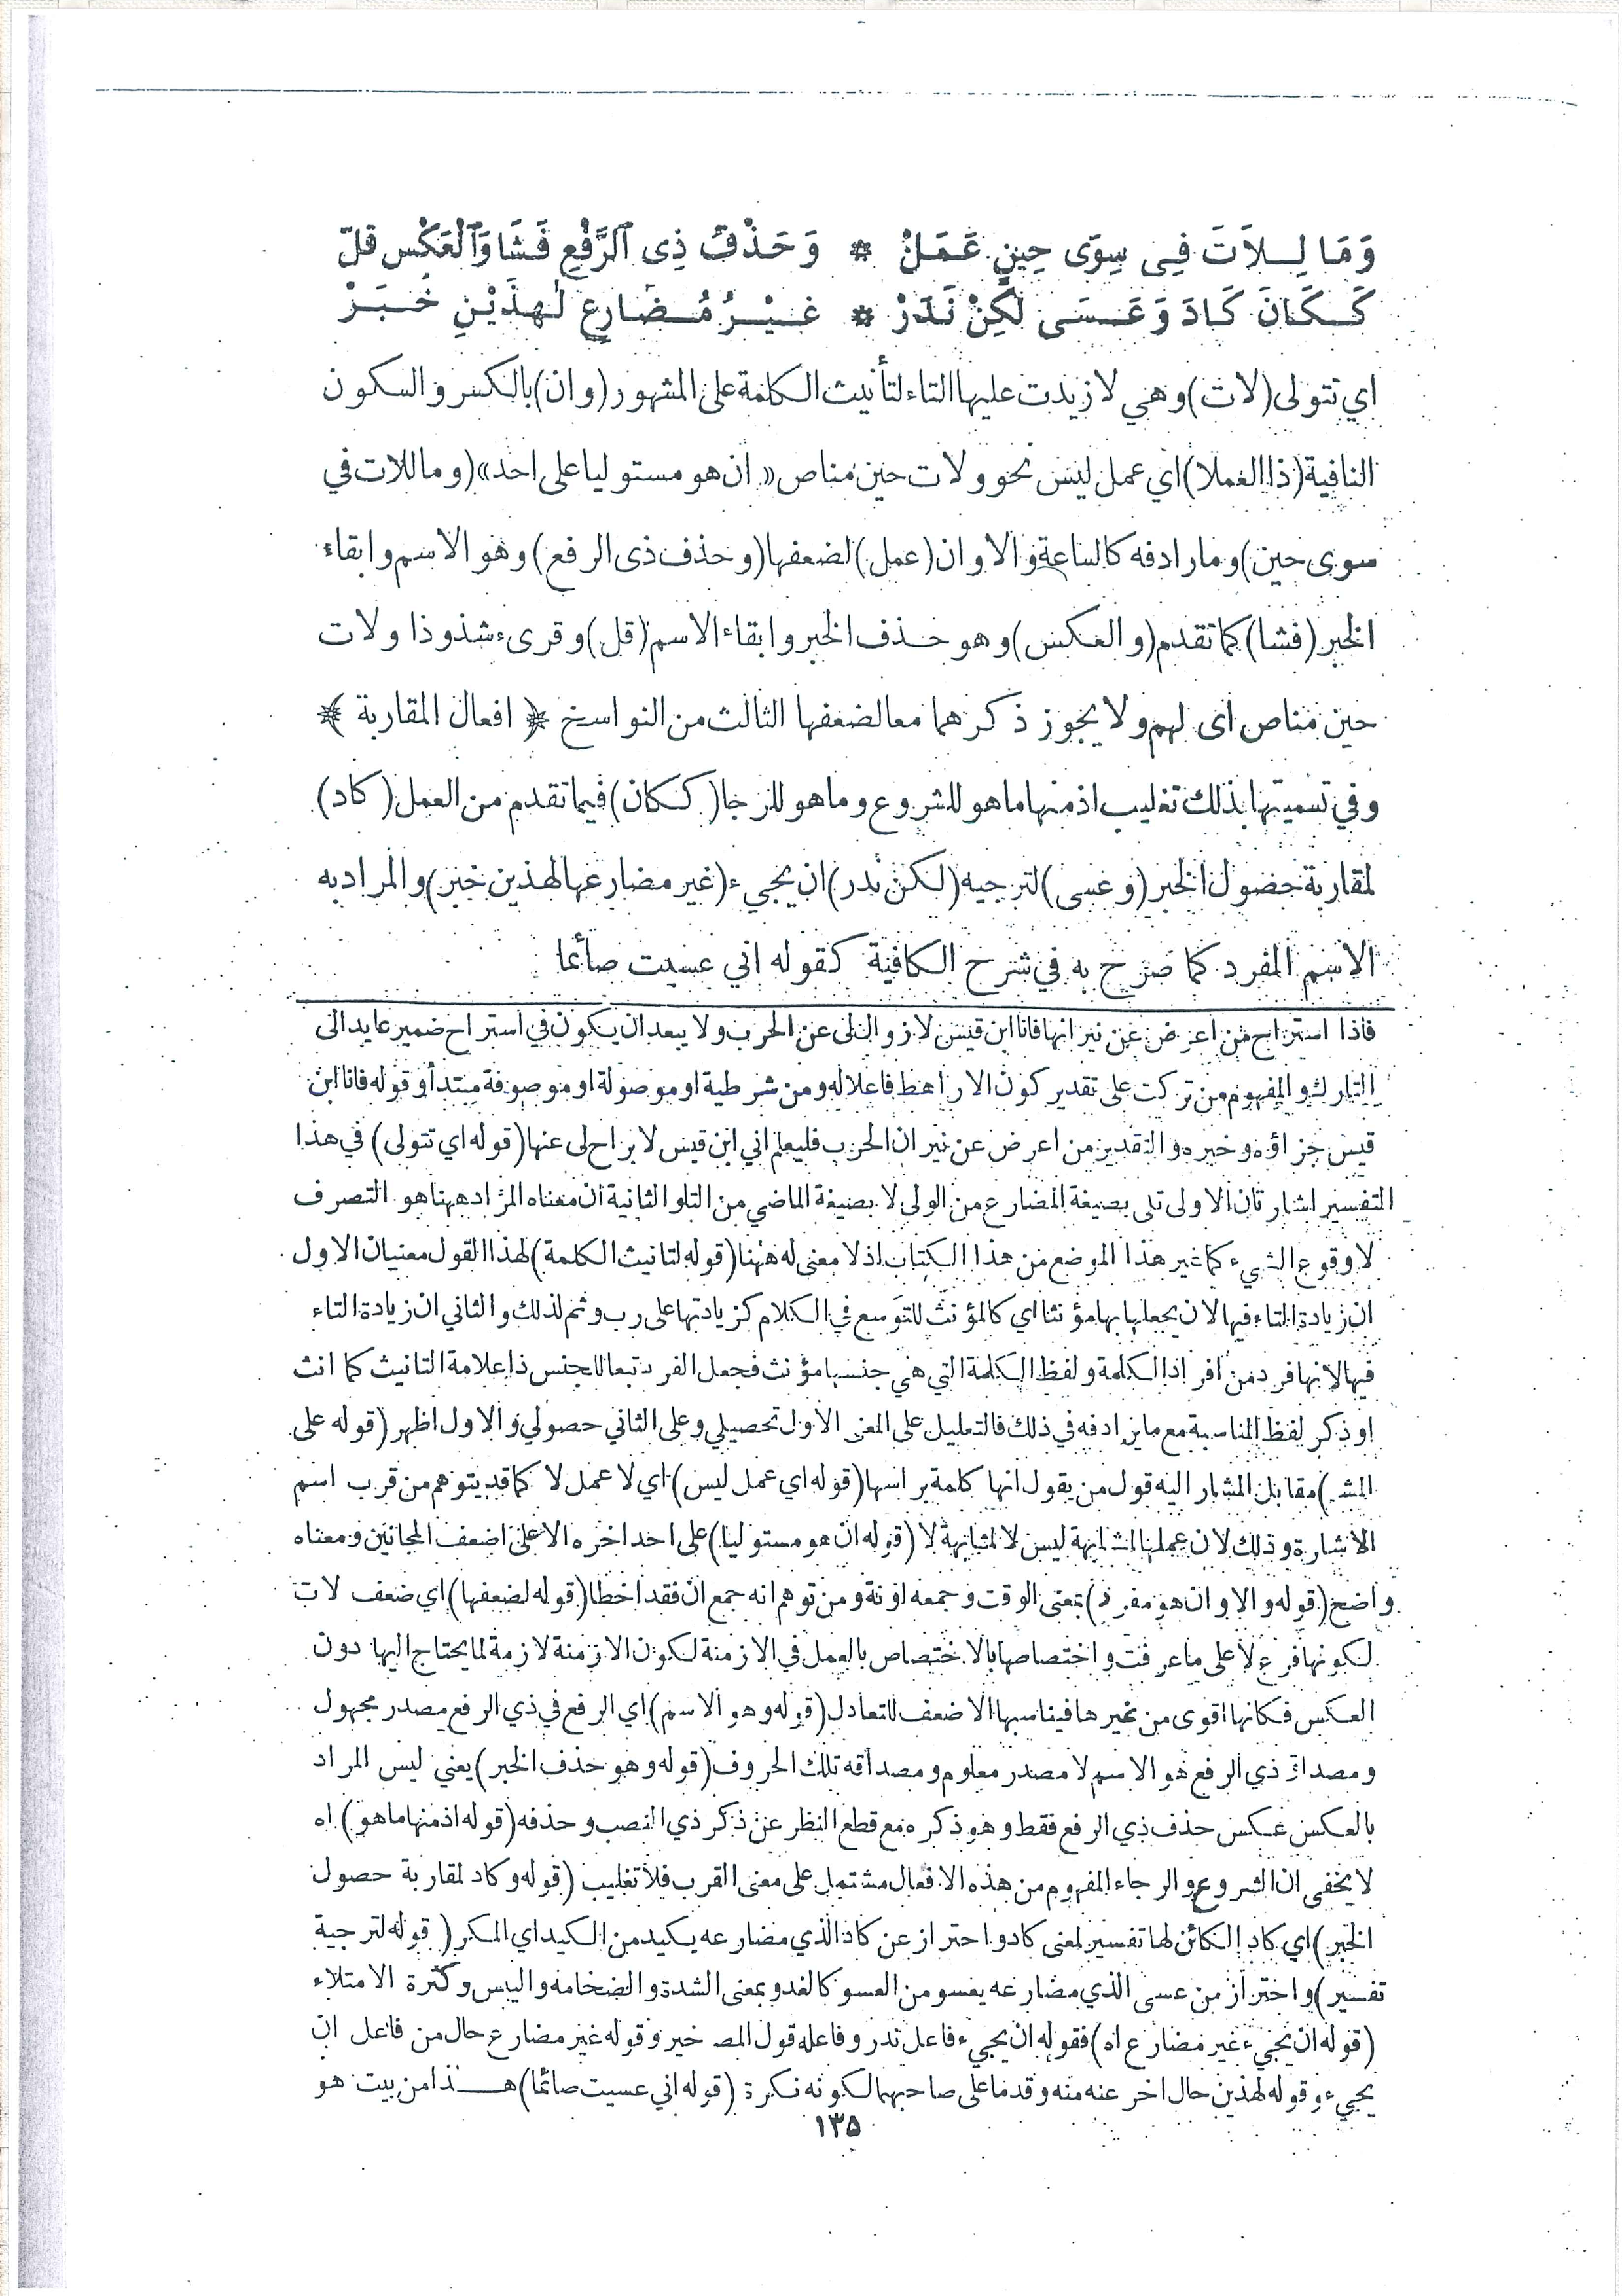 وَمَا لِلاَتَ فِى سِوَى حِينٍ عَمَلْ * وَحَذْفُ ذِى ٱلرَّفْعِ فَشَا وَٱلْعَكْس قلّ
كَكَانَ كَادَ وَعَسَى لٰكِنْ نَدَرْ * غَيْرُ مُضَارِعٍ لِهٰذَيْنِ خَبَرْ
اي تتولى (لات) وهي لا زيدت عليها التاء لتأنيث الكلمة على المشهور (وان) بالكسر والسكون
النافية (ذا العملا) اي عمل ليس نحو ولات حين مناص « ان هو مستوليا على احد» (وما للات في
سوى حين) وما رادفه كالساعة والاوان (عمل) لضعفها (وحذف ذى الرفع) وهو الاسم وابقاء
الخبر (فشا) كما تقدم (والعكس) وهو حذف الخبر وابقاء الاسم (قل) وقرىء شذوذا ولات
حين مناص اى لهم ولا يجوز ذكرهما معا لضعفها الثالث من النواسخ ﴿ افعال المقاربة ﴾
وفي تسميتها بذلك تغليب اذ منها ما هو للشروع وما هو للرجا (ككان) فيما تقدم من العمل (كاد)
لمقاربة حصول الخبر (وعسى) لترجيه (لكن ندر) ان يجيء (غير مضارع لهذين خبر) والمراد به
الاسم المفرد كما صرح به في شرح الكافية كقوله اني عسيت صائما
فاذا استراح من اعرض عن نيرانها فانا ابن قيس لا زوال لى عن الحرب ولا يبعد ان يكون في استراح ضمير عايد الى
التارك والمفهوم من تركت على تقدير كون الاراهط فاعلا له ومن شرطية او موصولة او موصوفة مبتدأ وقوله فانا ابن
قيس جزاؤه وخبره والتقدير من اعرض عن نيران الحرب فليعلم اني ابن قيس لا براح لى عنها (قوله اي تتولى) في هذا
التفسير اشارتان الاولى تلى بصيغة المضارع من الولى لا بصيغة الماضي من التلو الثانية ان معناه المراد ههنا هو التصرف
لا وقوع الشيء كما غير هذا الموضع من هذا الكتاب اذ لا معنى له ههنا (قوله لتانيث الكلمة) لهذا القول معنيان الاول
ان زيادة التاء فيها لان يجعلها بها مؤنثا اي كالمؤنث للتوسع في الكلام كزيادتها على رب وثم لذلك والثاني ان زيادة التاء
فيها لانها فرد من افراد الكلمة ولفظ الكلمة التي هي جنسها مؤنث فجعل الفرد تبعا للجنس ذا علامة التانيث كما انث
او ذكر لفظ المناسبة مع ما يرادفه في ذلك فالتعليل على المعنى الاول تحصيلي وعلى الثاني حصولي والاول اظهر (قوله على
المشـ) مقابل المشار اليه قول من يقول انها كلمة براسها (قوله اي عمل ليس) اي لا عمل لا كما قد يتوهم من قرب اسم
الاشارة وذلك لان عملها لمشابهة ليس لا لمشابهة لا (قوله ان هو مستوليا) على احد اخره الا على اضعف المجانين ومعناه
واضح (قوله والاوان هو مفرد) بمعنى الوقت وجمعه اونة ومن توهم انه جمع ان فقد اخطا (قوله لضعفها) اي ضعف لات
لكونها فرع لا على ما عرفت واختصاصها بالاختصاص بالعمل في الازمنة لكون الازمنة لازمة لما يحتاج اليها دون
العكس فكانها اقوى من غيرها فيناسبها الاضعف للتعادل (قوله وهو الاسم) اي الرفع في ذي الرفع مصدر مجهول
ومصداق ذي الرفع هو الاسم لا مصدر معلوم ومصداقه تلك الحروف (قوله وهو حذف الخبر) يعني ليس المراد
بالعكس عكس حذف ذي الرفع فقط وهو ذكره مع قطع النظر عن ذكر ذي النصب وحذفه (قوله اذ منها ما هو) اه
لا يخفى ان الشروع والرجاء المفهوم من هذه الافعال مشتمل على معنى القرب فلا تغليب (قوله وكاد لمقاربة حصول
الخبر) اي كاد الكائن لها تفسير لمعنى كاد واحتراز عن كاد الذي مضارعه يكيد من الكيد اي المكر (قوله لترجية
تفسير) واحتراز من عسى الذي مضارعه يعسو من العسو كالغدو بمعنى الشدة والضخامه واليبس وكثرة الامتلاء
(قوله ان يجيء غير مضارع اه) فقوله ان يجيء فاعل ندر وفاعله قول المصـ خبر وقوله غير مضارع حال من فاعل ان
يجيء وقوله لهذين حال اخر عنه منه وقدما على صاحبهما لكونه نكرة (قوله اني عسيت صائما) هــذا من بيت هو
١٣٥